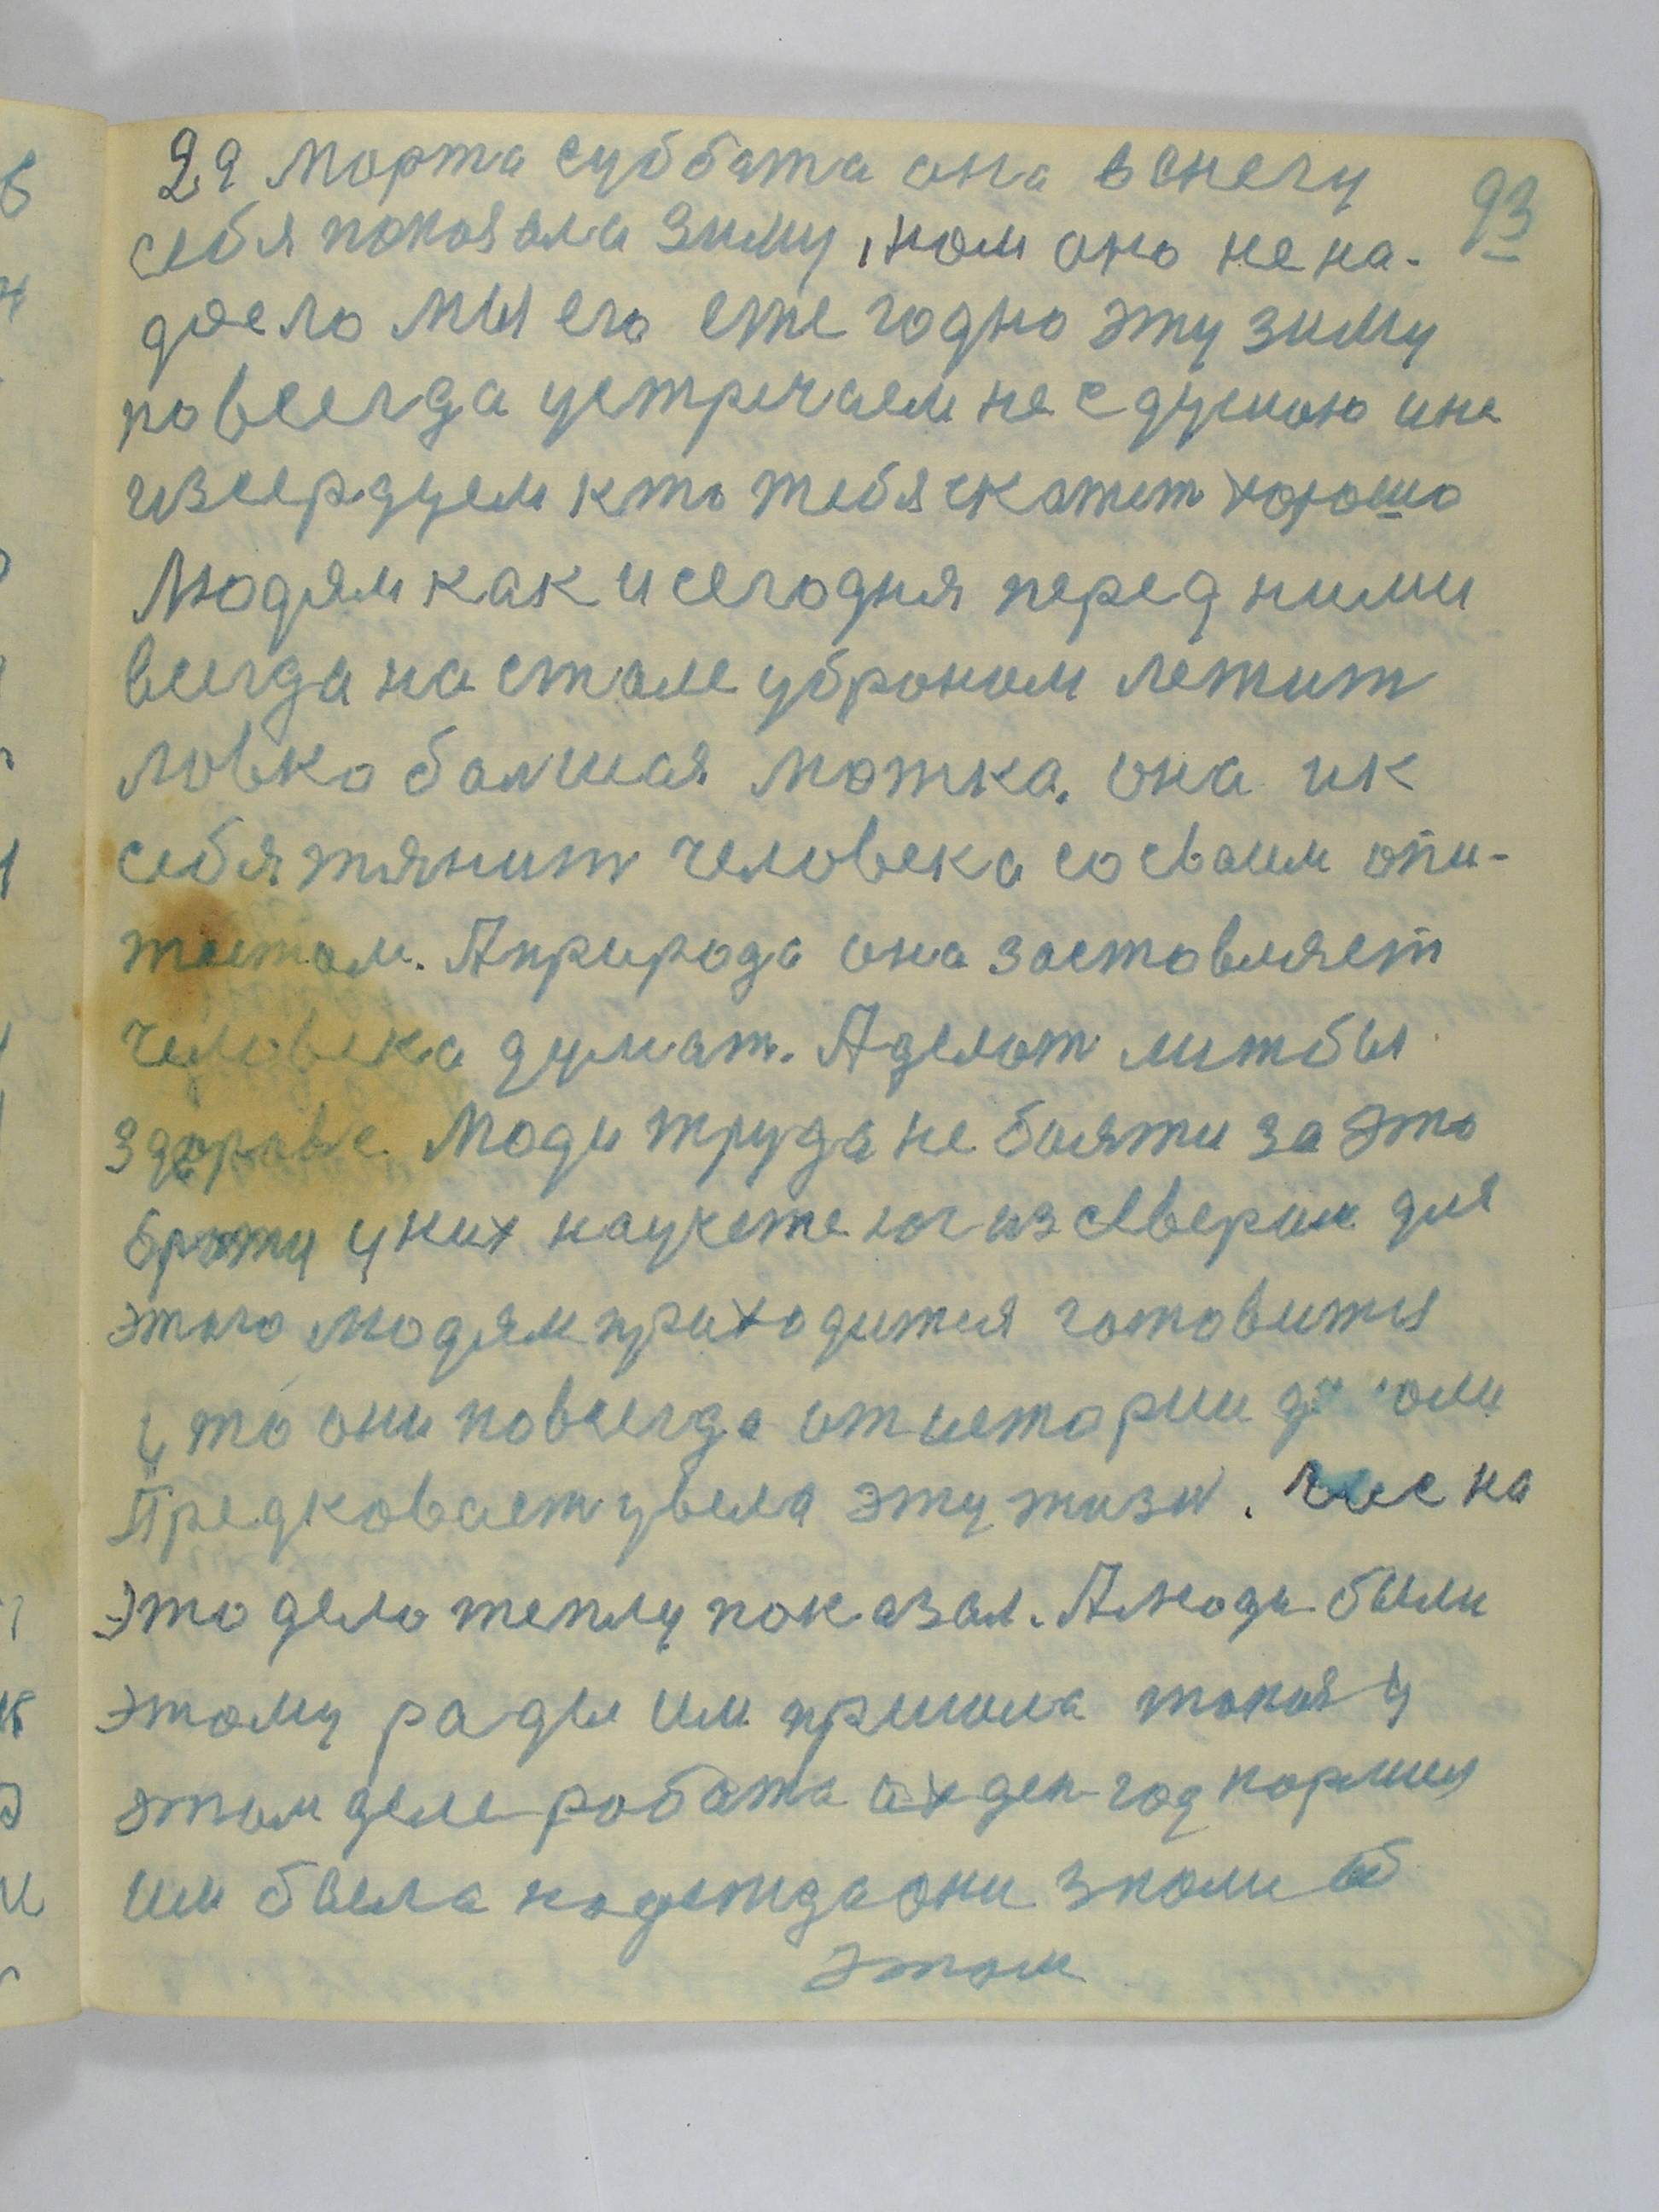 93
29 марта суббата она в снегу
себя показала зиму, нам она не на-
доела мы его еже годно эту зиму
повсегда устричаем не с душою и не
из сердцем кто тебя скажет хорошо
Людям как и сегодня перед ними
всегда на столе убраном лежит
ловко балшая ложка. она и к
себя тянит человека со своим опи-
титом. А природа она заставляет
человека думат. А делат лиж бы
здоровие Люди труда не боятся за это
братця у них науке же юг из севером для
этого людям приходится готовится
что они повсегда от истории
Предковаст увела эту жизн. час на
это дело теплу показал. А люди были
этому рады им пришла такая у
этом деле работа ох ден год кормил
им была надежда они знали об
этом